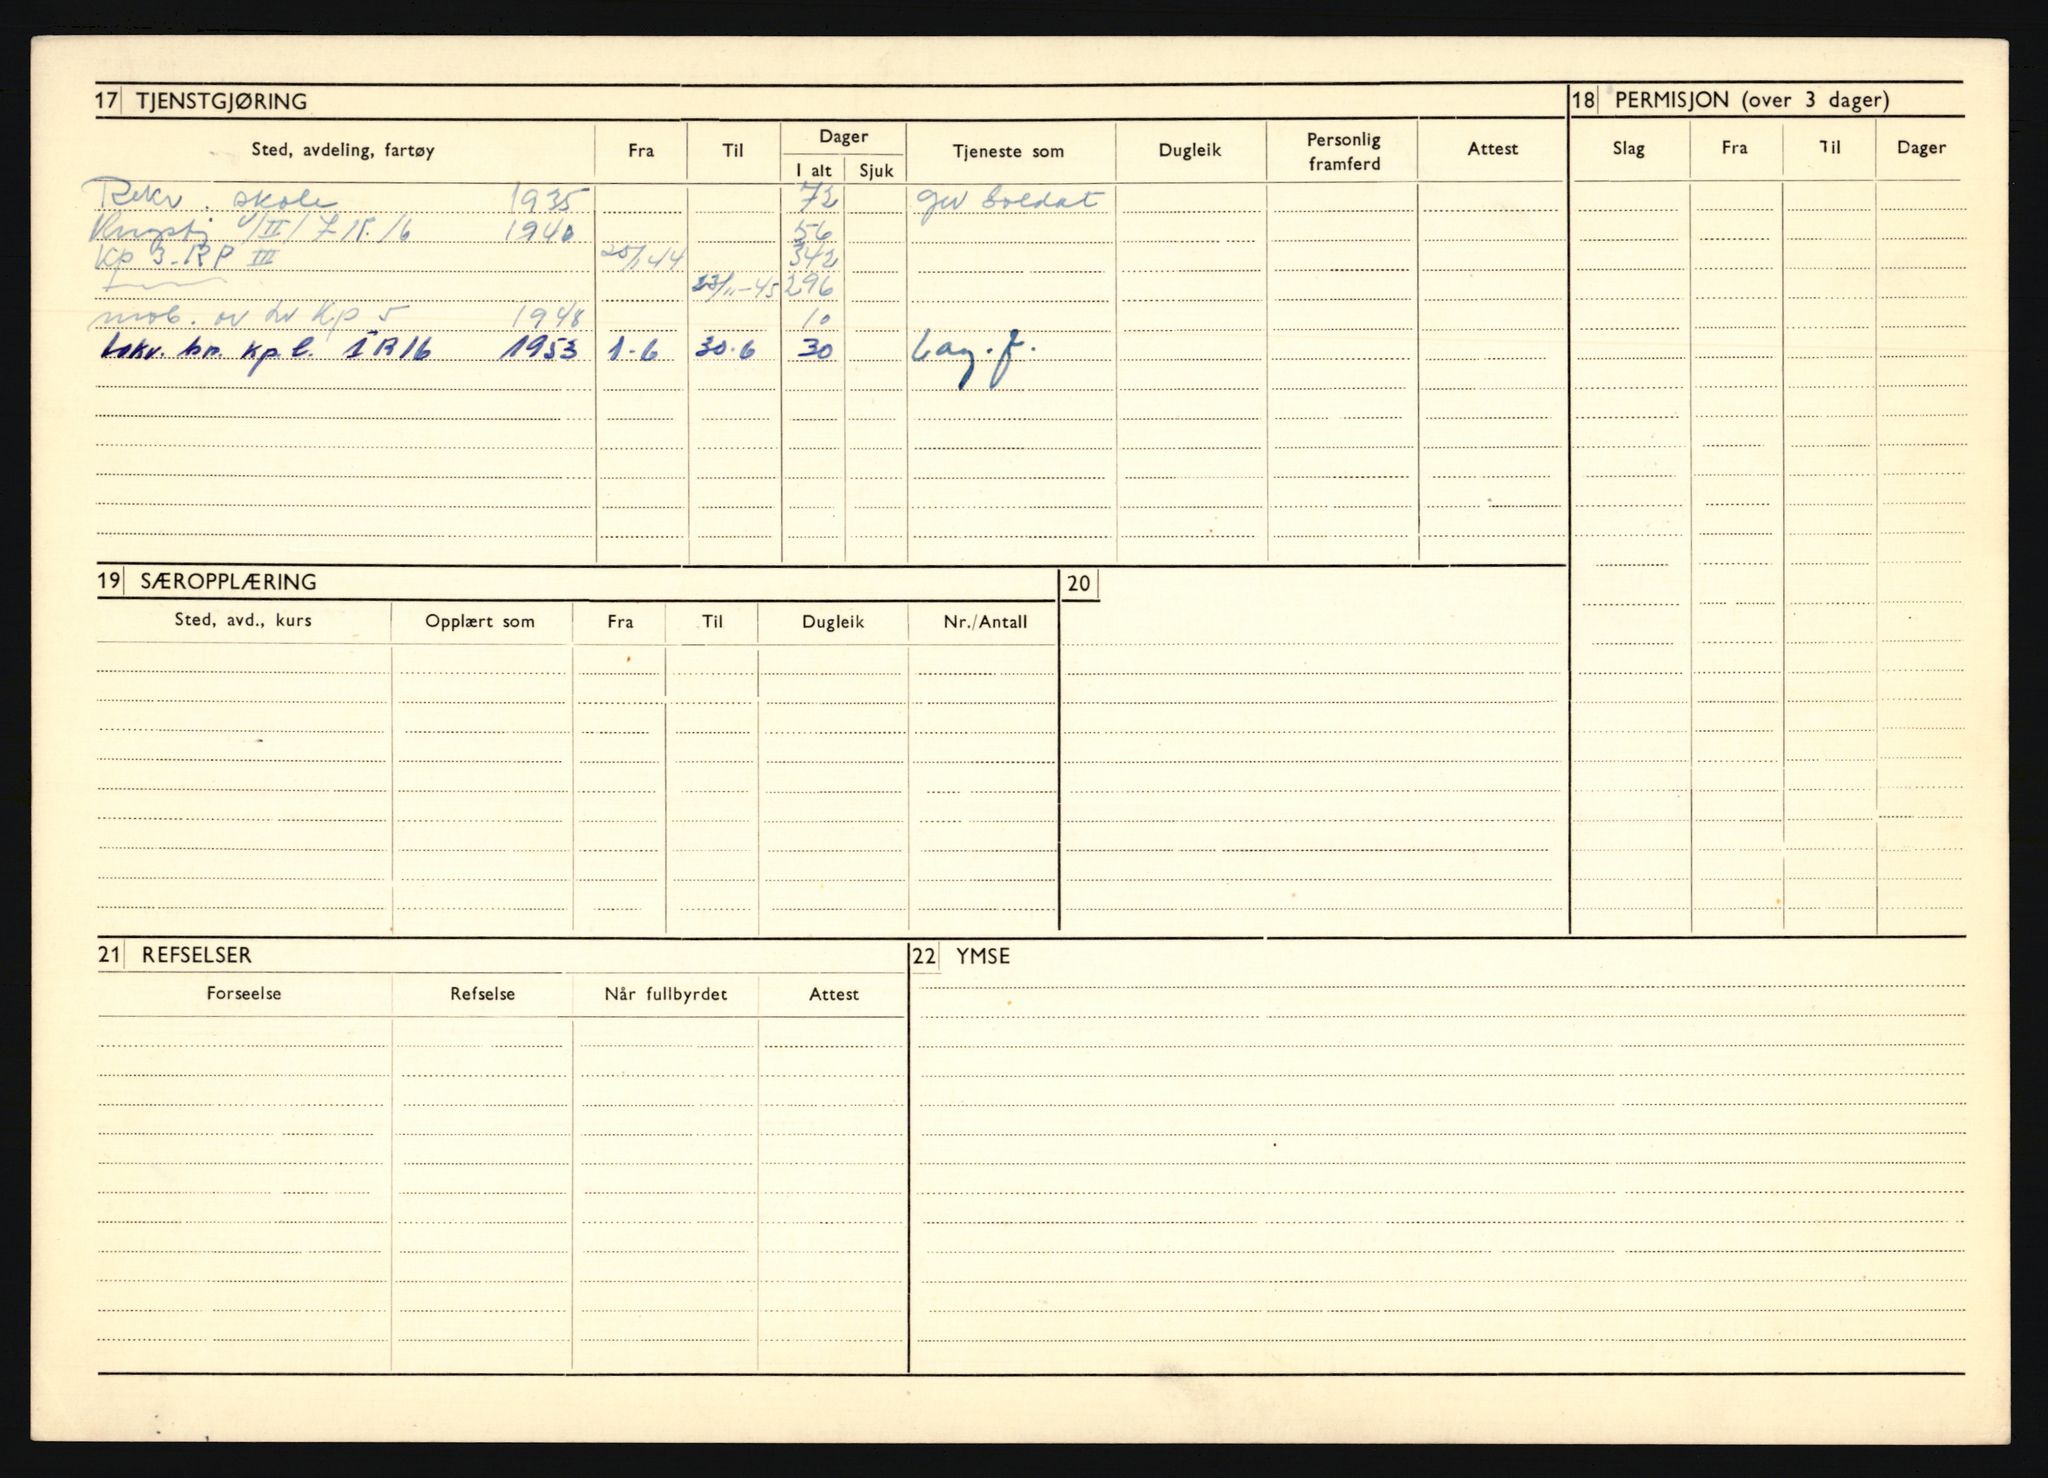 17 TJENSTGJØRING
Sted, avdeling, fartøy Fra Til Dager I alt Sjuk Tjeneste som Dugleik Personlig framferd Attest
Rekr. skole 1935 72 gev soldat
/II/ I R. 16 1940 56
Kp 3 - RP III 25/1 44 342
23/11-45 296
mob. øv Lv Kp 5 1948 10
Lokv. bn. Kp. C. IR 16 1953 1-6 30-6 30 Lag.f.
18 PERMISJON (over 3 dager)
Slag Fra Til Dager
19 SÆROPPLÆRING
Sted, avd., kurs Opplært som Fra Til Dugleik Nr./Antall
20
21 REFSELSER
Forseelse Refselse Når fullbyrdet Attest
22 YMSE